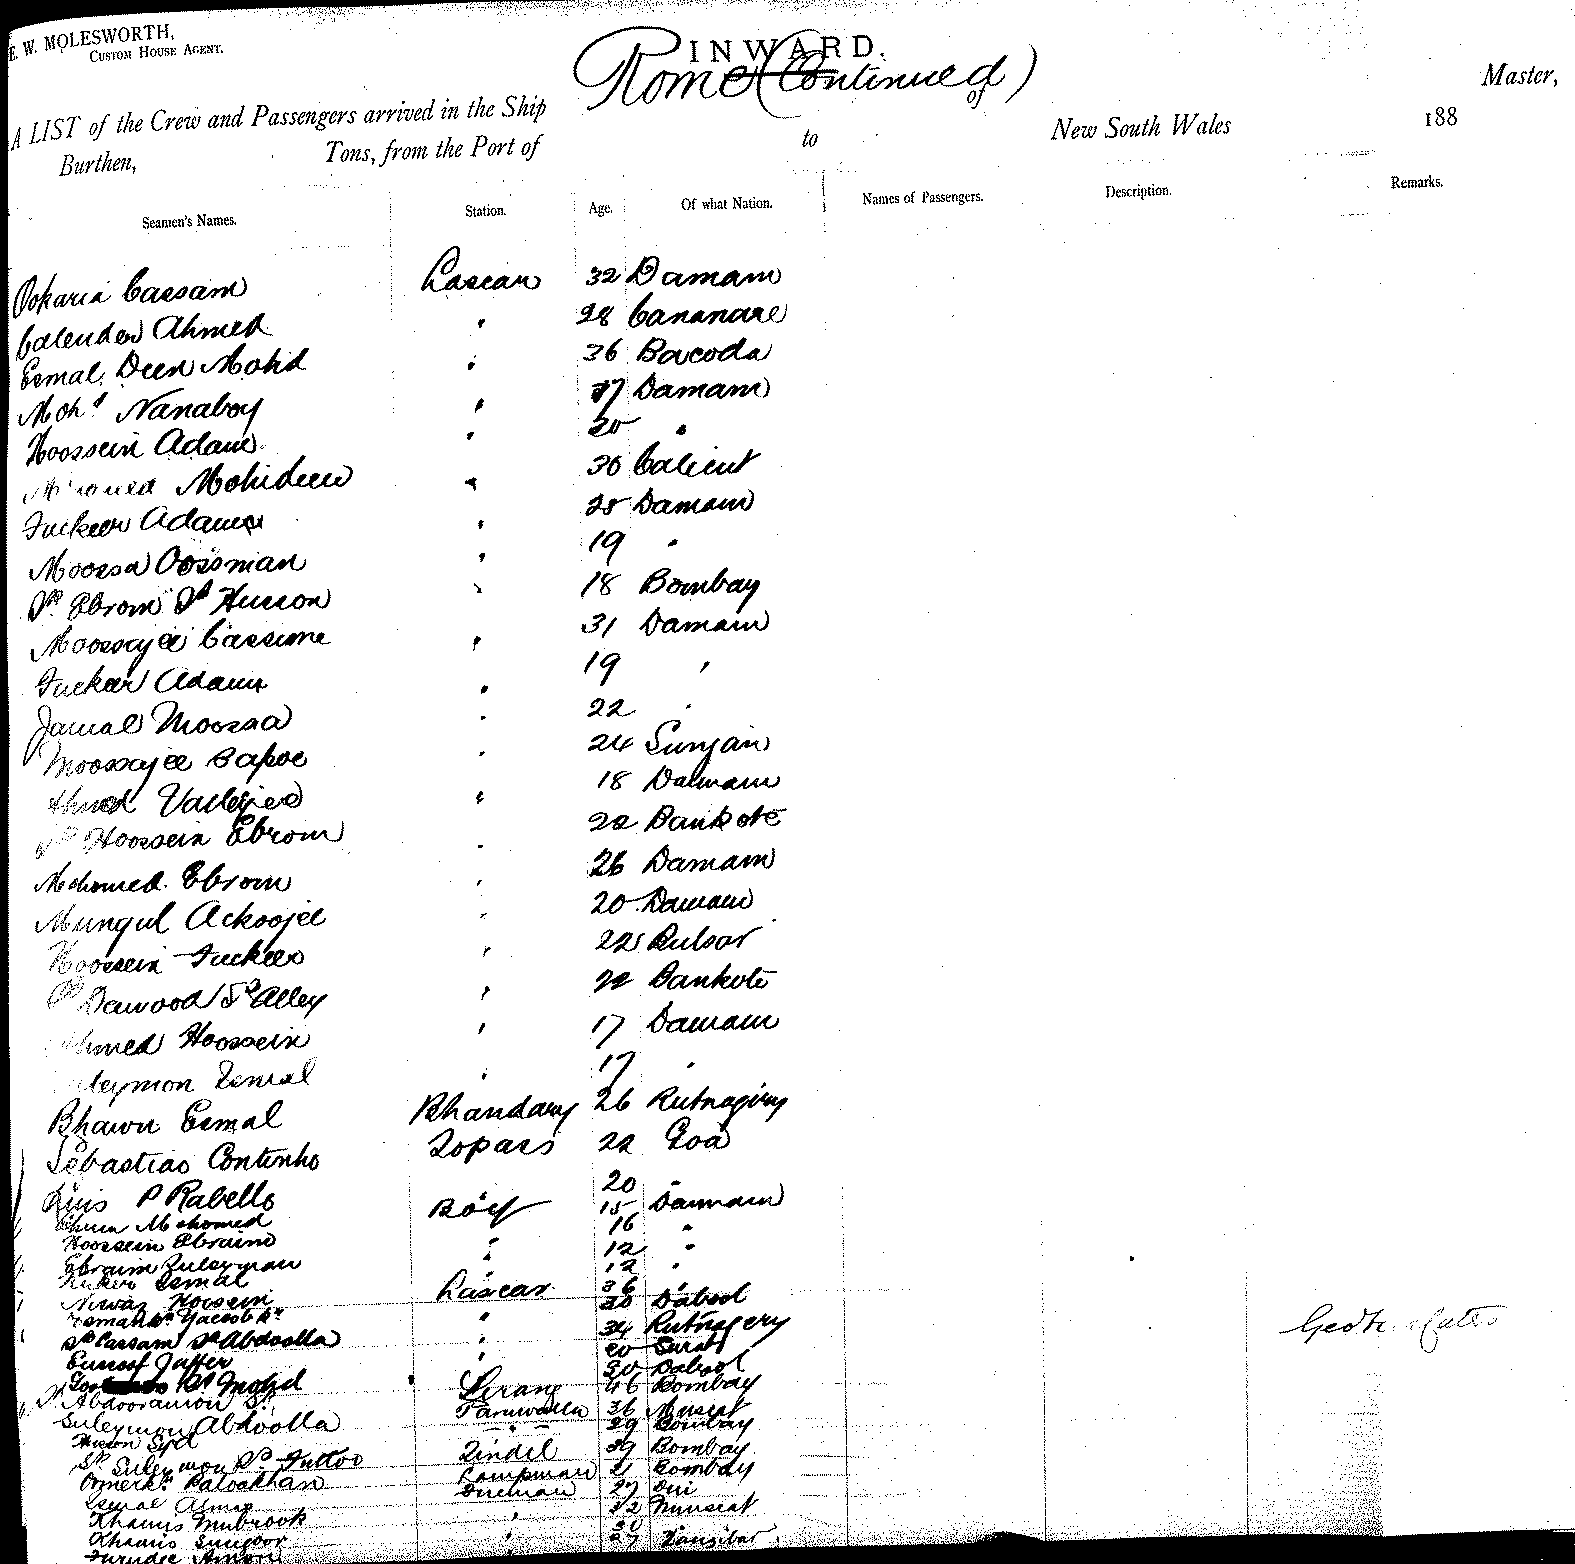 E. W. MOLESWORTH,
CUSTOM HOUSE AGENT.
INWARD.
Rome (Continued)
of Master,
A LIST of the Crew and Passengers arrived in the Ship
Burthen, Tons, from the Port of to New South Wales 188
Seamen's Names. Station. Age. Of what Nation. Names of Passengers. Description. Remarks.
Cassam Lascar 32 Damam
Calender Ahmed " 28 Cananare
Esmal Deen Mohd " 36 Bacoda
Mohd Nanaboy " 37 Damam
Hoossein Adam " 20 "
Mohideen " 30 Calicut
Fuckeer Adam " 25 Damam
Moossa Oosman " 19 "
Sk Ebrom Sk Husson " 18 Bombay
Moosajee Cassime " 31 Damam
Fuckeer Adam " 19 "
Jamal Moossa " 22 "
Moosajee Bapoe " 24 Sunjan
Ahmed Valleyjee " 18 Damam
Sk Hoossein Ebrom " 22 Bankote
Mahomed Ebrom " 26 Damam
Mungul Ackoojee " 20 Damam
Hoossein Fuckeer " 22 Bulsar
Sk Dawood Sk Alley " 22 Bankote
Ahmed Hoossein " 17 Damam
Suleymon Esmal " 17 "
Bhawn Esmal Bhandary 26 Rutnagiry
Sebastiao Continho Topass 22 Goa
Luis P Rabello " 20 "
Mahomed Boy 15 Damam
Hoossein Ebraim " 16 "
Ebraim Suleyman " 12 "
Esmal " 12 "
Niwaz Hoosein Lascar 36 "
Yacoob 30 Dabool
Sk Cassam Sk Abdoolla " 34 Rutnagery
Eusoof Jaffer " 20 Surat
30 Dabool
Abdooraimon Serang 46 Bombay
Suleymon Abdoolla 36 Muscat
Husson Syd 29 Bombay
Sk Suleymon Sk Futtoo Tindel 39 Bombay
Lampman 21 Bombay
Esmal Fireman 27 Diu
Khamis Mubrook " 32 Muscat
Khamis
" 27 Zanzibar